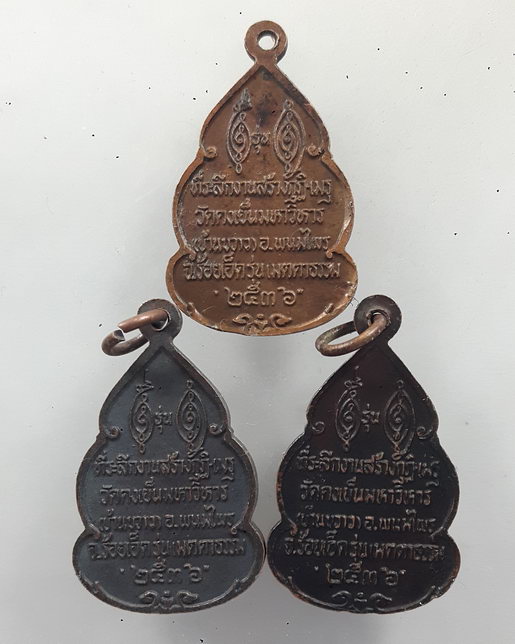 รุ่น
ที่ระลึกงานสร้างกุฏิ
วัดดงเย็นมหาวิหาร
(บ้านนาวา) อ.พนมไพร
จ.ร้อยเอ็ด รุ่นเมตตาธรรม
๒๕๓๖
รุ่น
ที่ระลึกงานสร้างกุฏิ
วัดดงเย็นมหาวิหาร
(บ้านนาวา) อ.พนมไพร
จ.ร้อยเอ็ด รุ่นเมตตาธรรม
๒๕๓๖
รุ่น
ที่ระลึกงานสร้างกุฏิ
วัดดงเย็นมหาวิหาร
(บ้านนาวา) อ.พนมไพร
จ.ร้อยเอ็ด รุ่นเมตตาธรรม
๒๕๓๖